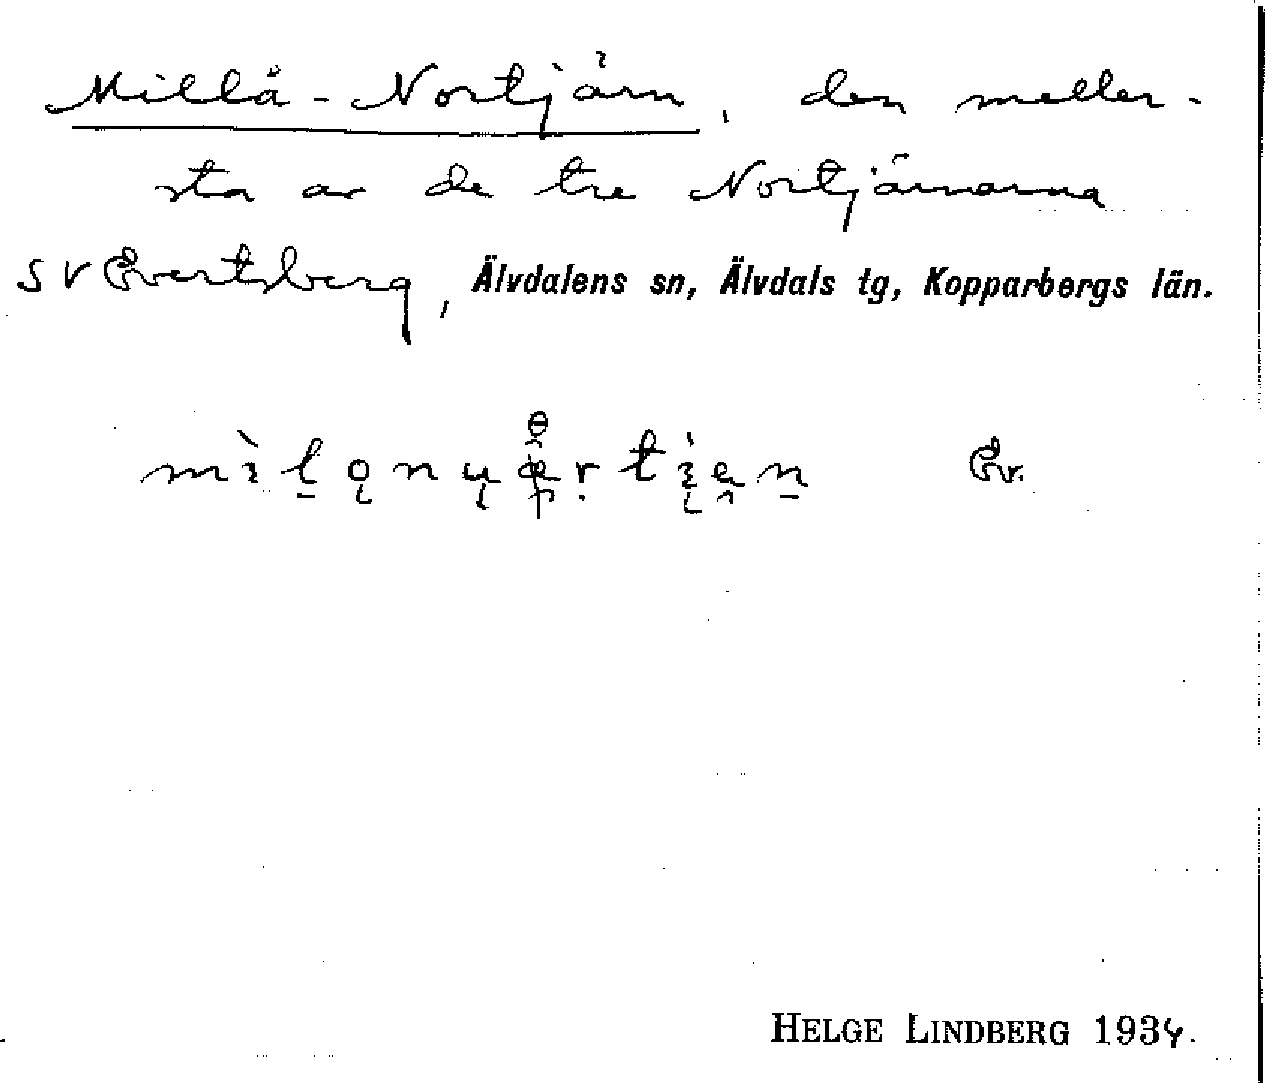 Millå-Nortjärn, den meller-
sta av de tre Nortjärnarna
SV Evertsberg, Älvdalens sn, Älvdals tg, Kopparbergs län.
Ev.
HELGE LINDBERG 1934.